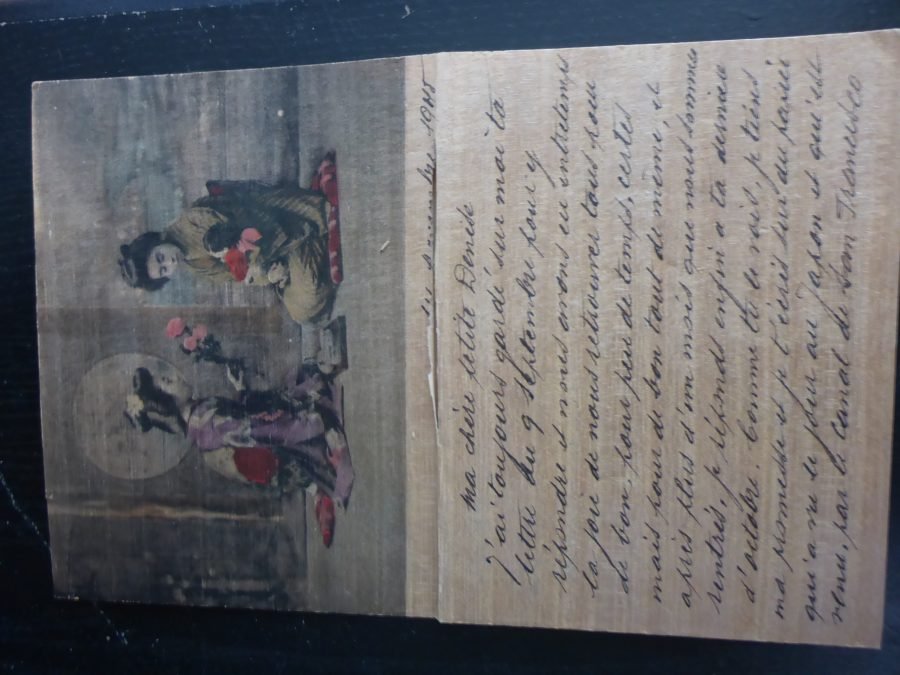 novembre 1905
ma chère petite Denise
J'ai toujours gardé sur moi ta
lettre du 9 septembre pour y
répondre et nous avons eu entretemps
la joie de nous retrouver tous pour
de bon, pour peu de temps, certes
mais pour de bon tout de même, et
après plus d'un mois que nous sommes
rentrés, je réponds enfin à ta dernière
d'octobre. Comme tu le vois, je tiens
ma promesse et je t'écris sur du papier
qui a vu le jour au Japon et qui est
venu, par le Canal de San Francisco